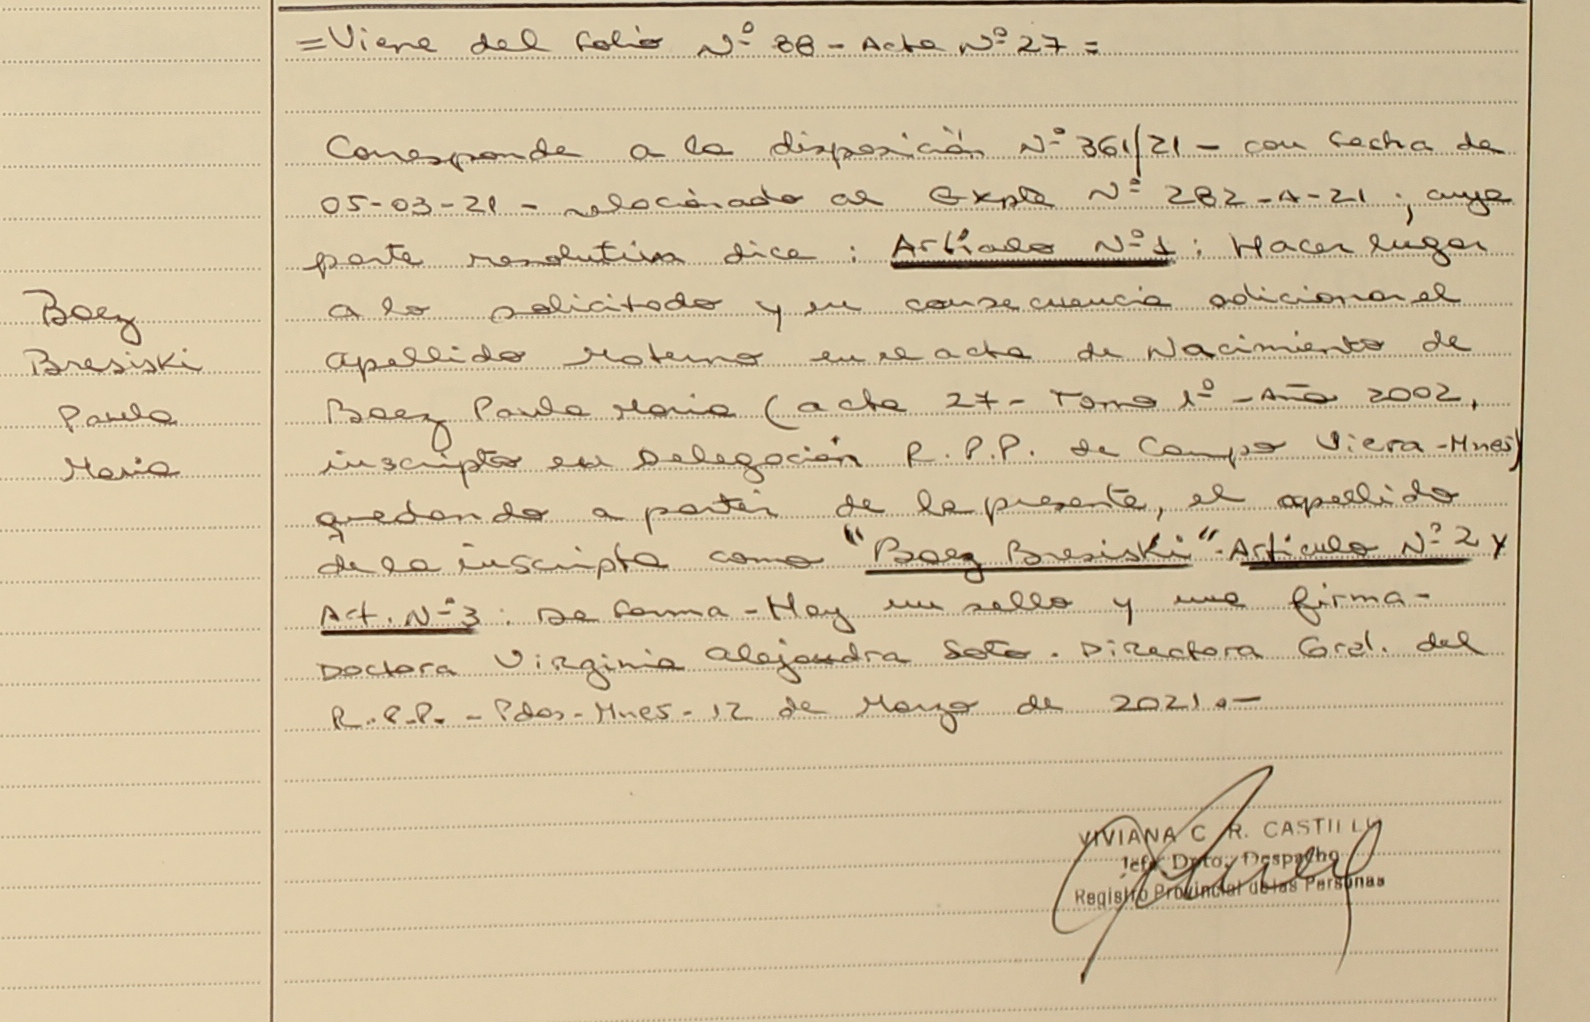 =Viene del folio Nº 88 - Acta Nº 27 =
Corresponde a la disposición Nº 361/21 - con fecha de
05-03-21 - relacionado al Expte Nº 282-A-21 ; cuya
parte resolutiva dice : Artículo Nº 1 : Hacer lugar
a lo solicitado y en consecuencia adicionar el
apellido Materno en el acta de Nacimiento de
Baez Paula Maria (acta 27- Tomo 1º - Año 2002,
inscripta en Delegación R.P.P. de Campo Viera-Mnes)
quedando a partir de la presente, el apellido
de la inscripta como "Baez Bresiski". Artículo Nº 2 y
Art. Nº 3 : De forma - Hay un sello y una firma -
Doctora Virginia Alejandra Soto. Directora Gral. del
R.P.P. - Pdas-Mnes- 12 de Marzo de 2021.-
Baez
Bresiski
Paula
Maria
VIVIANA C. R. CASTILLO
Jefe Dpto. Despacho
Registro Provincial de las Personas